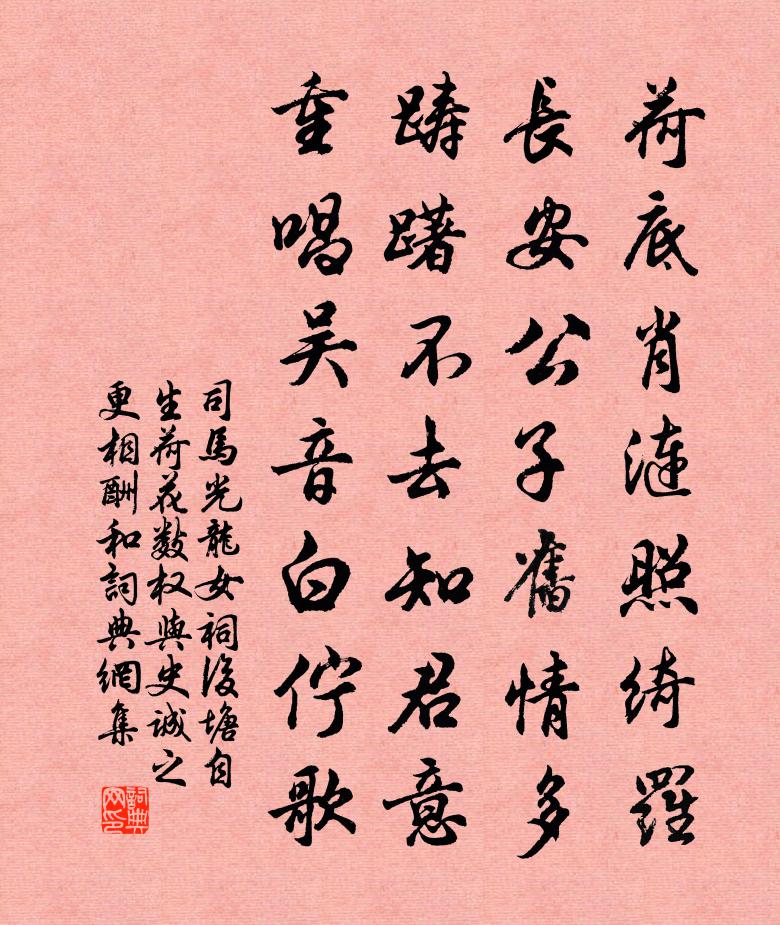 荷底肖漣照綺羅
長安公子舊情多
躊躇不去知君意
重唱吳音白佇歌
司馬光龍女祠後塘自
生荷花數枝與史誠之
更相酬和詞典網集
詞典
网印